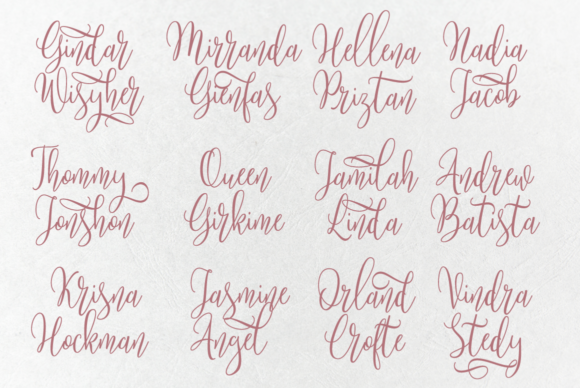 Gindar
Wisyher
Mirranda
Gienfas
Hellena
Priztan
Nadia
Jacob
Thommy
Jonshon
Queen
Girkime
Jamilah
Linda
Andrew
Batista
Krisna
Hockman
Jasmine
Angel
Orland
Crofte
Vindra
Stedy